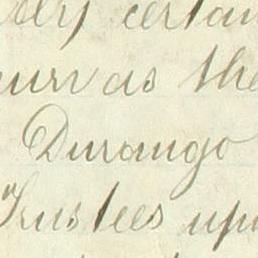 certain
as the
Durango
Trustees upo